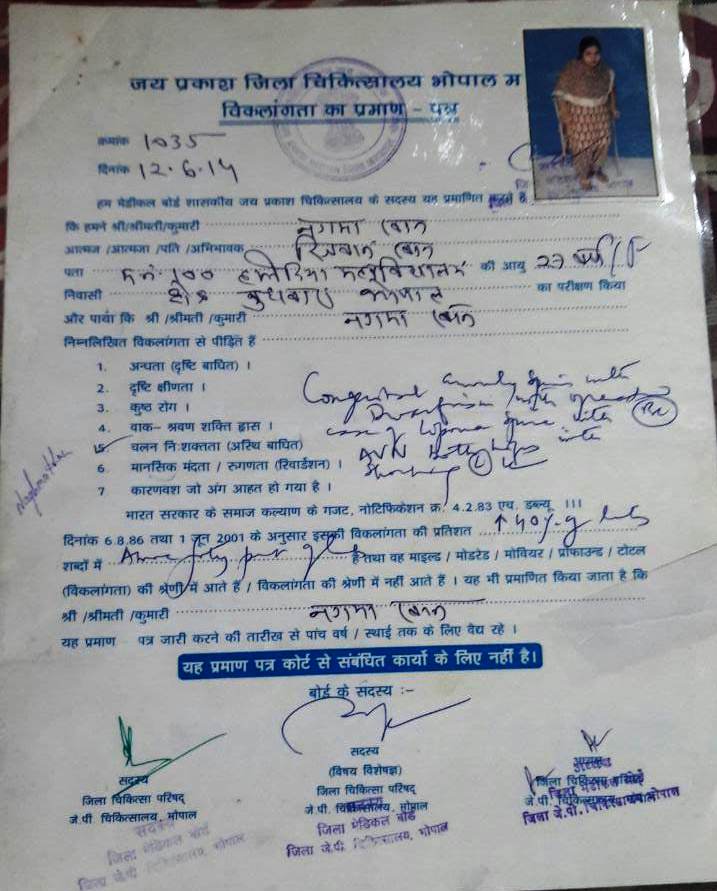 जय प्रकाश जिला चिकित्सालय भोपाल म
विकलांगता का प्रमाण - पत्र
क्रमांक 1035
दिनांक 12.6.14
हम मेडीकल बोर्ड शासकीय जय प्रकाश चिकित्सालय के सदस्य यह प्रमाणित करते है
कि हमने श्री/श्रीमती/कुमारी नगमा खान
आत्मज /आत्मजा /पति /अभिभावक रिजवान खान
पता म.नं. 100 हमीदिया महाविद्यालय की आयु 27 वर्ष
निवासी बुधवारा भोपाल का परीक्षण किया
और पाया कि श्री /श्रीमती /कुमारी नगमा खान
निम्नलिखित विकलांगता से पीड़ित हैं
1. अन्धता (दृष्टि बाधित) ।
2. दृष्टि क्षीणता ।
3. कुष्ठ रोग ।
4. वाक– श्रवण शक्ति ह्रास ।
5. चलन निःशक्तता (अस्थि बाधित)
6. मानसिक मंदता / रुगणता (रिवार्डेशन) ।
7 कारणवश जो अंग आहत हो गया है ।
Congenital with
AVN Both Hips
भारत सरकार के समाज कल्याण के गजट, नोटिफिकेशन क्र. 4.2.83 एच. डब्ल्यू. III
दिनांक 6.8.86 तथा 1 जून 2001 के अनुसार इसकी विकलांगता की प्रतिशत 40%
शब्दों में Above forty है तथा वह माइल्ड / मोडरेड / मोवियर / प्रोफाउन्ड / टोटल
(विकलांगता) की श्रेणी में आते हैं / विकलांगता की श्रेणी में नहीं आते हैं । यह भी प्रमाणित किया जाता है कि
श्री /श्रीमती /कुमारी नगमा खान
यह प्रमाण पत्र जारी करने की तारीख से पांच वर्ष / स्थाई तक के लिए वैद्य रहे ।
यह प्रमाण पत्र कोर्ट से संबंधित कार्यो के लिए नहीं है।
बोर्ड के सदस्य :–
सदस्य
जिला चिकित्सा परिषद्
जे.पी. चिकित्सालय, भोपाल
सदस्य
जिला मेडिकल बोर्ड
जिला जे.पी. चिकित्सालय, भोपाल
सदस्य
(विषय विशेषज्ञ)
जिला चिकित्सा परिषद्
जे.पी. चिकित्सालय, भोपाल
जिला मेडिकल बोर्ड
जिला जे.पी. चिकित्सालय, भोपाल
जिला चिकित्सा परिषद
जे.पी. चिकित्सालय भोपाल
जिला मेडीकल बोर्ड
जिला जे.पी. चिकित्सालय भोपाल